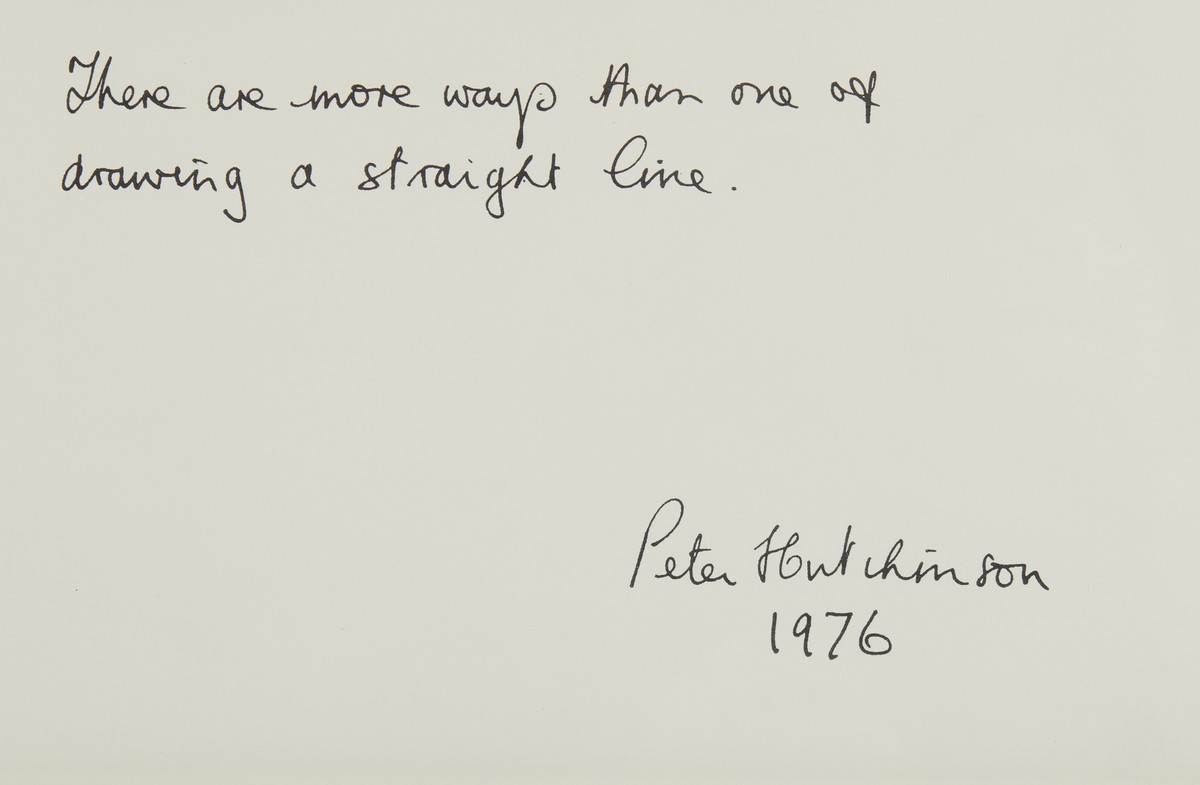 There are more ways than one of
drawing a straight line.
Peter Hutchinson
1976